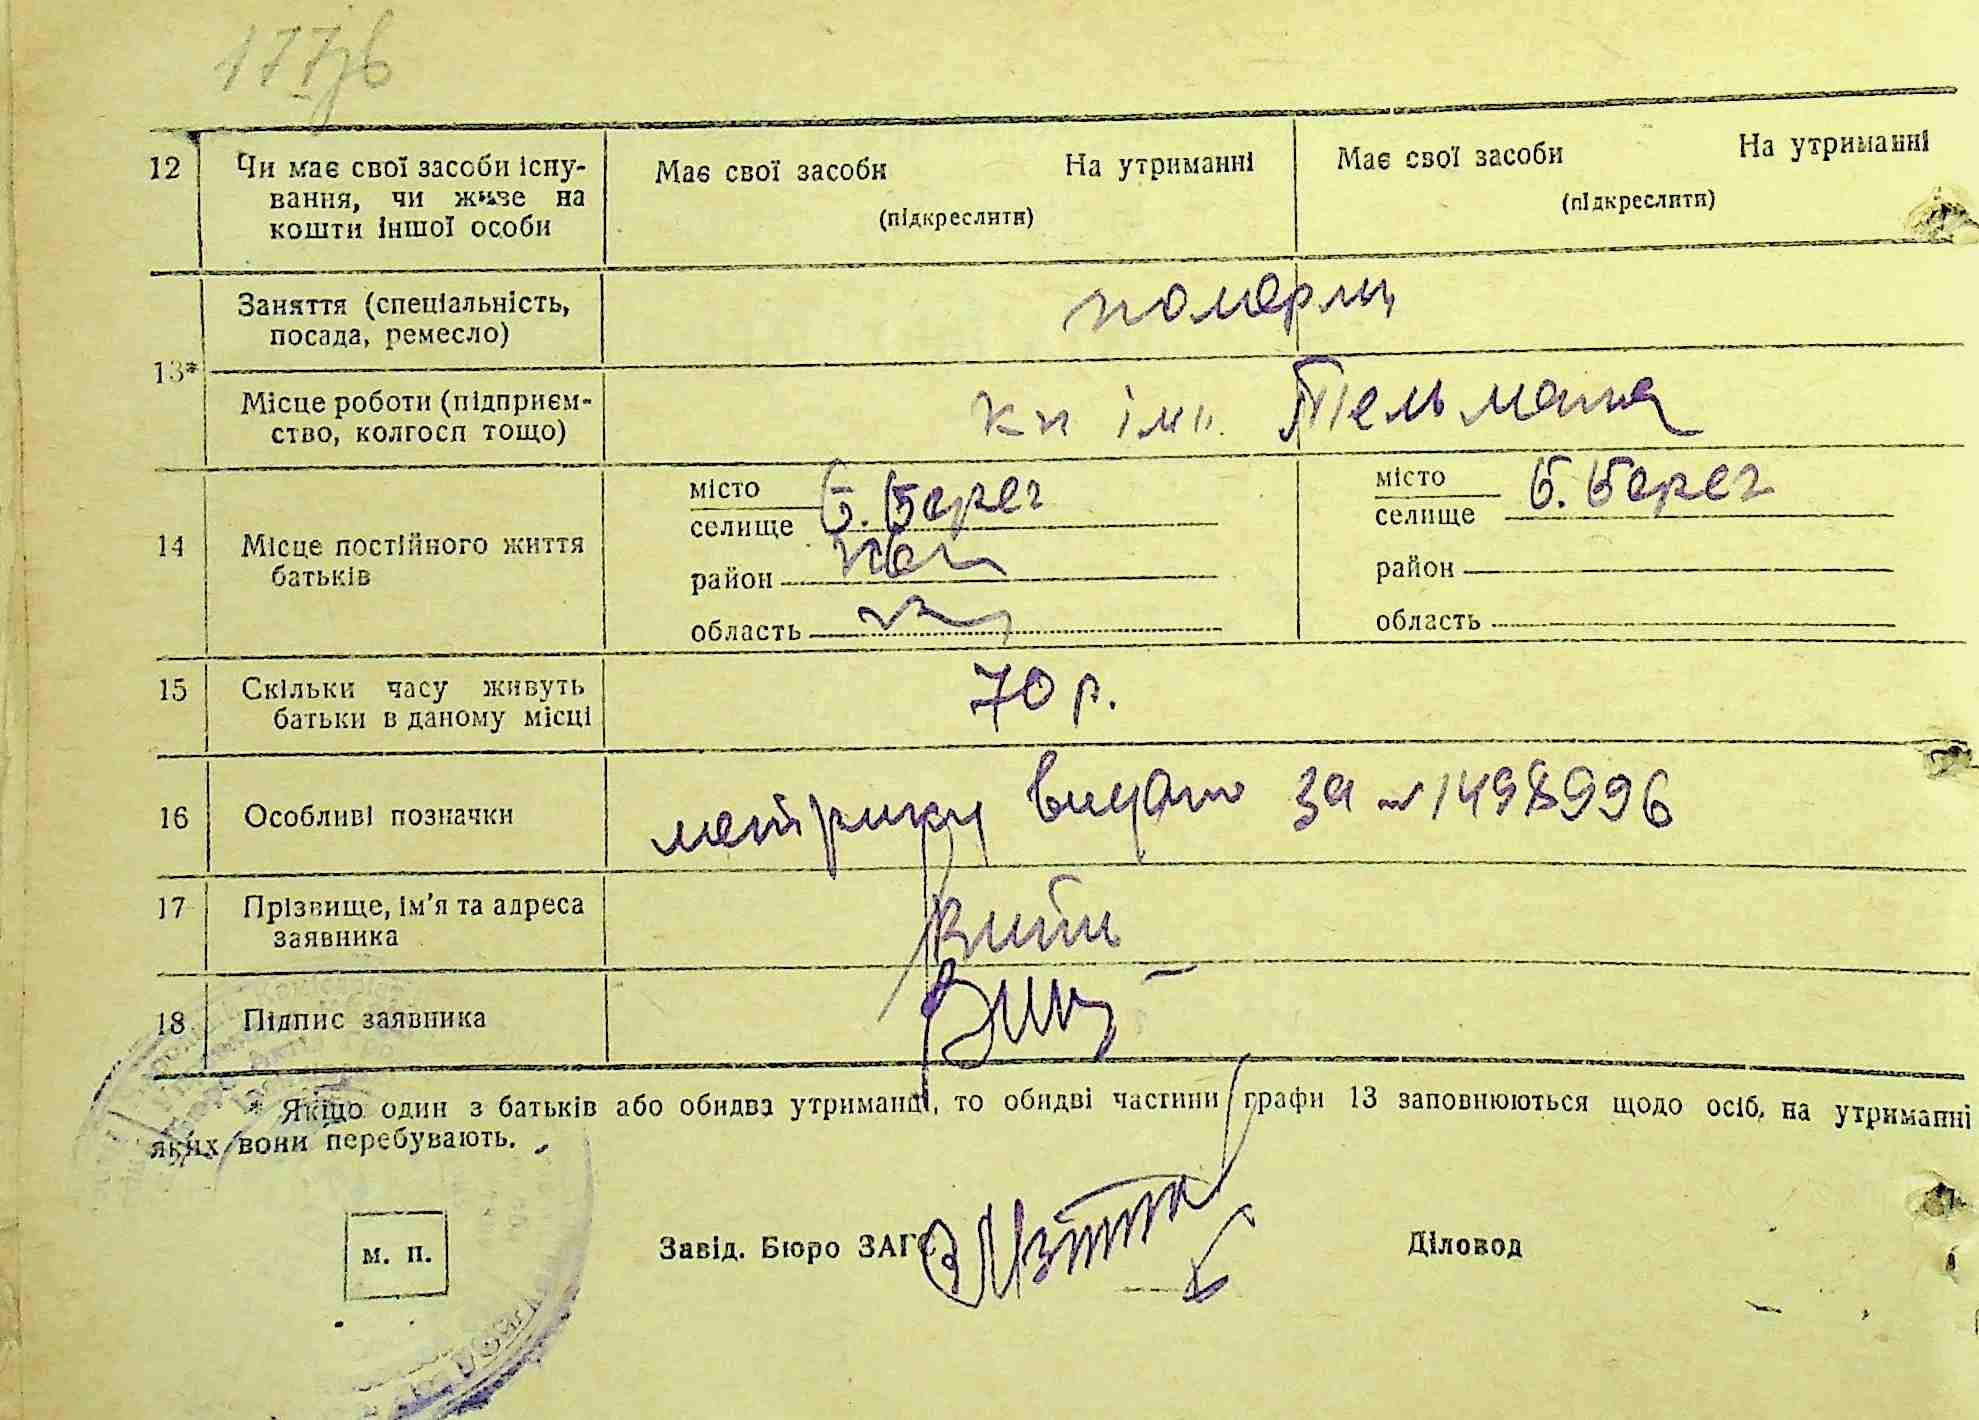 12 Чи має свої засоби існу- Має свої засоби На утриманні Має свої засоби На утриманні
вання, чи живе на (підкреслити) (підкреслити)
кошти іншої особи
Заняття (спеціальність, померли
посада, ремесло)
13*
Місце роботи (підприєм- кп ім. Тельмана
ство, колгосп тощо)
місто Б. Берег місто Б. Берег
селище селище
14 Місце постійного життя
батьків
район район
область область
15 Скільки часу живуть 70 р.
батьки в даному місці
16 Особливі позначки метрику видано за № 1498996
17 Прізвище, ім'я та адреса
заявника
18 Підпис заявника
* Якщо один з батьків або обидва утриманці, то обидві частини графи 13 заповнюються щодо осіб, на утриманні
яких вони перебувають.
м. п. Завід. Бюро ЗАГС Діловод